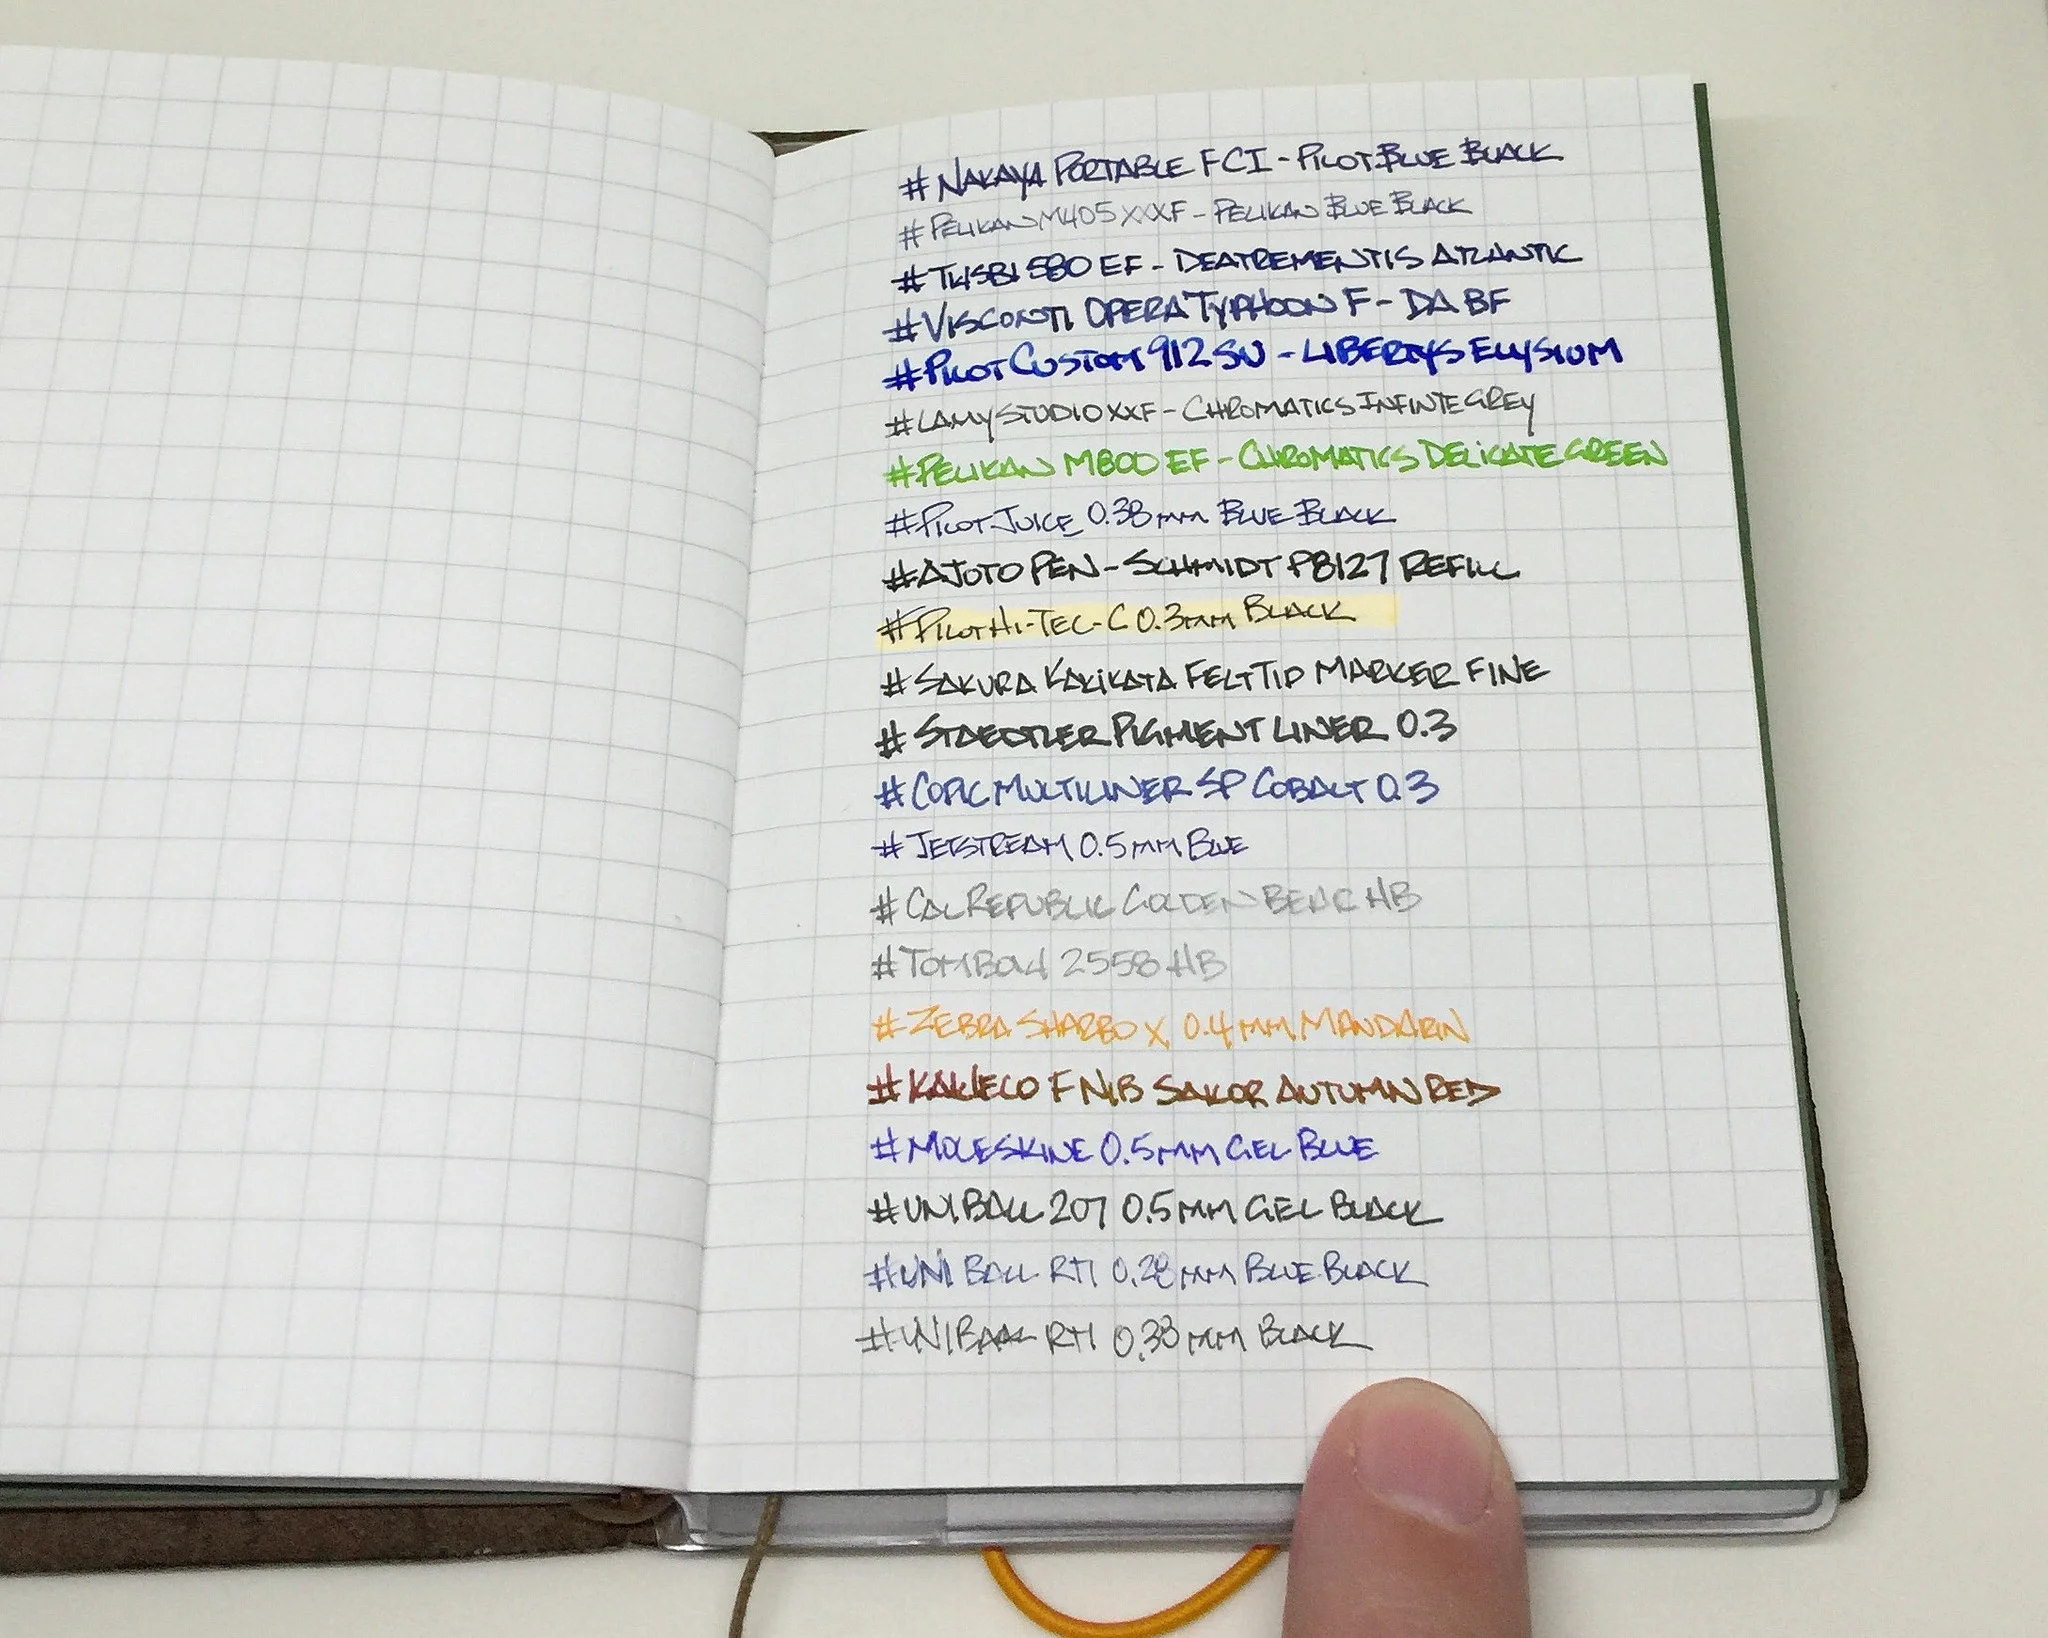 # NAKAYA PORTABLE FCI - PILOT BLUE BLACK
# PELIKAN M405 XXXF - PELIKAN BLUE BLACK
# TWSBI 580 EF - DEATREMENTIS ATLANTIC
# VISCONTI OPERA TYPHOON F - DA BF
# PILOT CUSTOM 912 SU - LIBERTYS ELYSIUM
# LAMY STUDIO XXF - CHROMATICS INFINTE GREY
# PELIKAN M800 EF - CHROMATICS DELICATE GREEN
# PILOT JUICE 0.38mm BLUE BLACK
# AJOTO PEN - SCHMIDT P8127 REFILL
# PILOT HI-TEC-C 0.3mm BLACK
# SAKURA KAKIKATA FELT TIP MARKER FINE
# STAEDTLER PIGMENT LINER 0.3
# COPIC MULTILINER SP COBALT 0.3
# JETSTREAM 0.5mm BLUE
# CAL REPUBLIC GOLDEN BEAR HB
# TOMBOW 2558 HB
# ZEBRA SHARBO X 0.4mm MANDARIN
# KAWECO F NIB SAILOR AUTUMN RED
# MOLESKINE 0.5mm GEL BLUE
# UNIBALL 207 0.5mm GEL BLACK
# UNI BALL RT1 0.28mm BLUE BLACK
# UNIBALL RT1 0.38mm BLACK